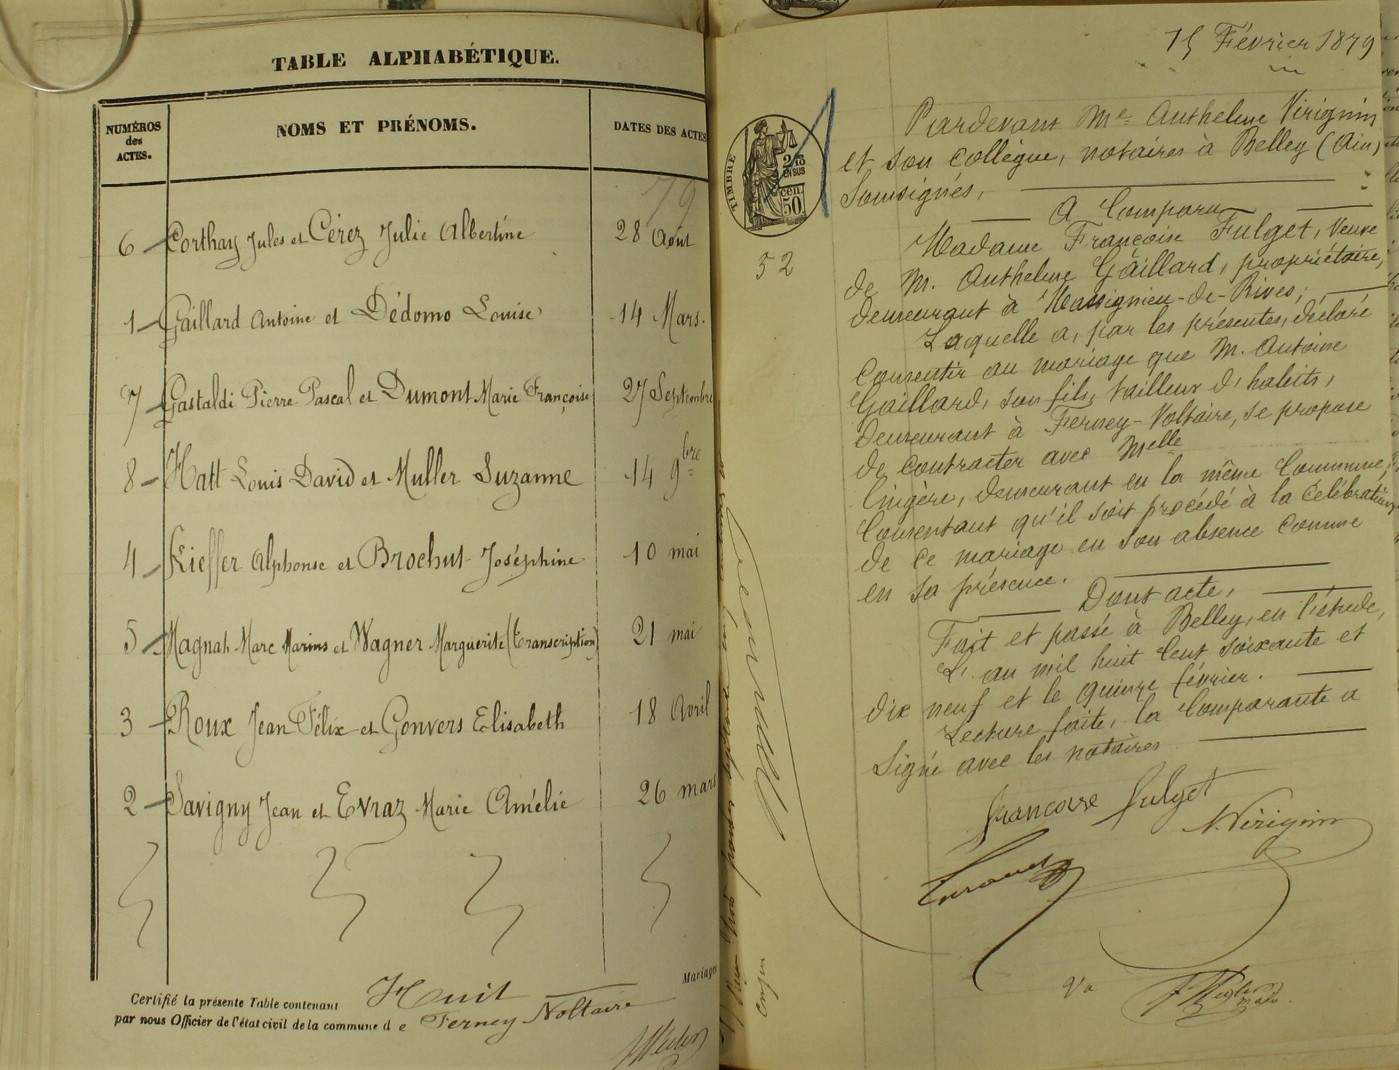 TABLE ALPHABÉTIQUE.
NUMÉROS des ACTES.
NOMS ET PRÉNOMS.
DATES DES ACTES
79
6 Corthay Jules et Cérez Julie Albertine 28 Août
1 Gaillard Antoine et Dédomo Louise 14 Mars.
7 Gastaldi Pierre Pascal et Dumont Marie Françoise 27 Septembre
8 Hatt Louis David et Muller Suzanne 14 9bre
4 Kieffer Alphonse et Brochut Joséphine 10 mai
5 Magnat Marc Marius et Wagner Marguerite (Transcription) 21 mai
3 Roux Jean Félix et Gonvers Elisabeth 18 Avril
2 Savigny Jean et Evraz Marie Amélie 26 mars
Certifié la présente Table contenant Huit Mariages
par nous Officier de l'état civil de la commune de Ferney Voltaire
15 Février 1879
TIMBRE
2/10 EN SUS
50 cen
52
Pardevant Me Anthelme Virignin
et son collègue, notaires à Belley (Ain)
soussignés,
A Comparu
Madame Françoise Fulget, Veuve
de M. Anthelme Gaillard, propriétaire,
demeurant à Massignieu-de-Rives;
Laquelle a, par les présentes, déclaré
consentir au mariage que M. Antoine
Gaillard, son fils, tailleur d'habits,
demeurant à Ferney-Voltaire, se propose
de contracter avec Melle
lingère, demeurant en la même Commune,
Consentant qu'il soit procédé à la célébration
de ce mariage en son absence comme
en sa présence.
Dont acte,
Fait et passé à Belley, en l'étude,
L'an mil huit cent soixante et
dix neuf et le quinze février.
Lecture faite, la Comparante a
signé avec les notaires
françoise fulget
Virignin
Va